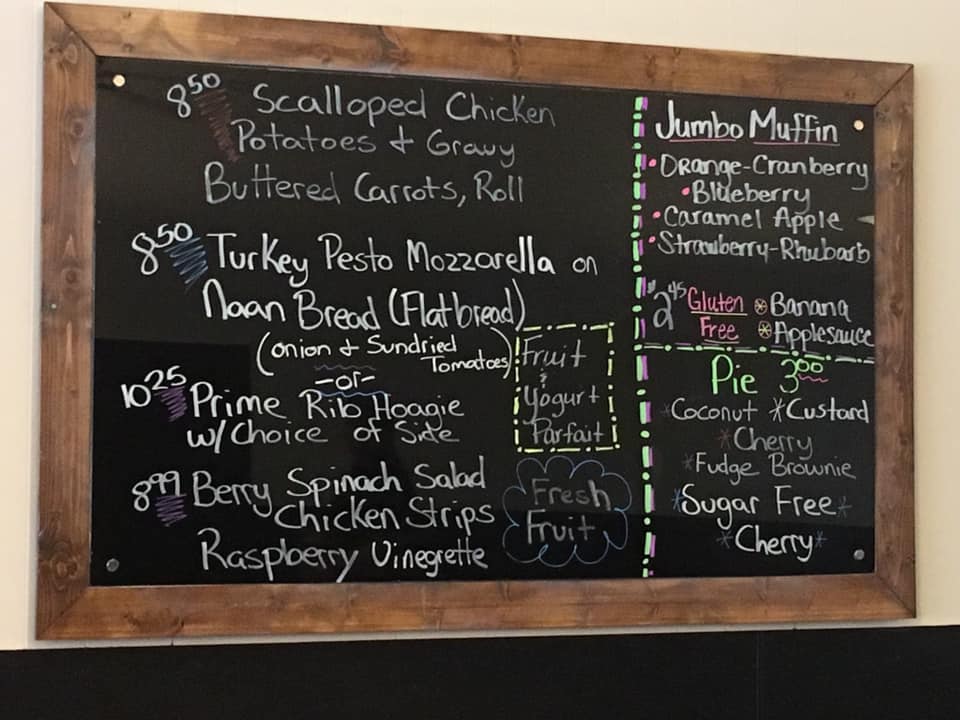 8⁵⁰ Scalloped Chicken
Potatoes & Gravy
Buttered Carrots, Roll
8⁵⁰ Turkey Pesto Mozzarella on
Naan Bread (Flatbread)
(Onion & Sundried
Tomatoes)
-or-
10²⁵ Prime Rib Hoagie
w/ Choice of Side
8⁹⁹ Berry Spinach Salad
Chicken Strips
Raspberry Vinegrette
Fruit
&
Yogurt
Parfait
Fresh
Fruit
Jumbo Muffin
• Orange-Cranberry
• Blueberry
• Caramel Apple
• Strawberry-Rhubarb
$2⁴⁵ Gluten Free
Banana
Applesauce
Pie 3⁰⁰
*Coconut *Custard
*Cherry
*Fudge Brownie
*Sugar Free*
*Cherry*